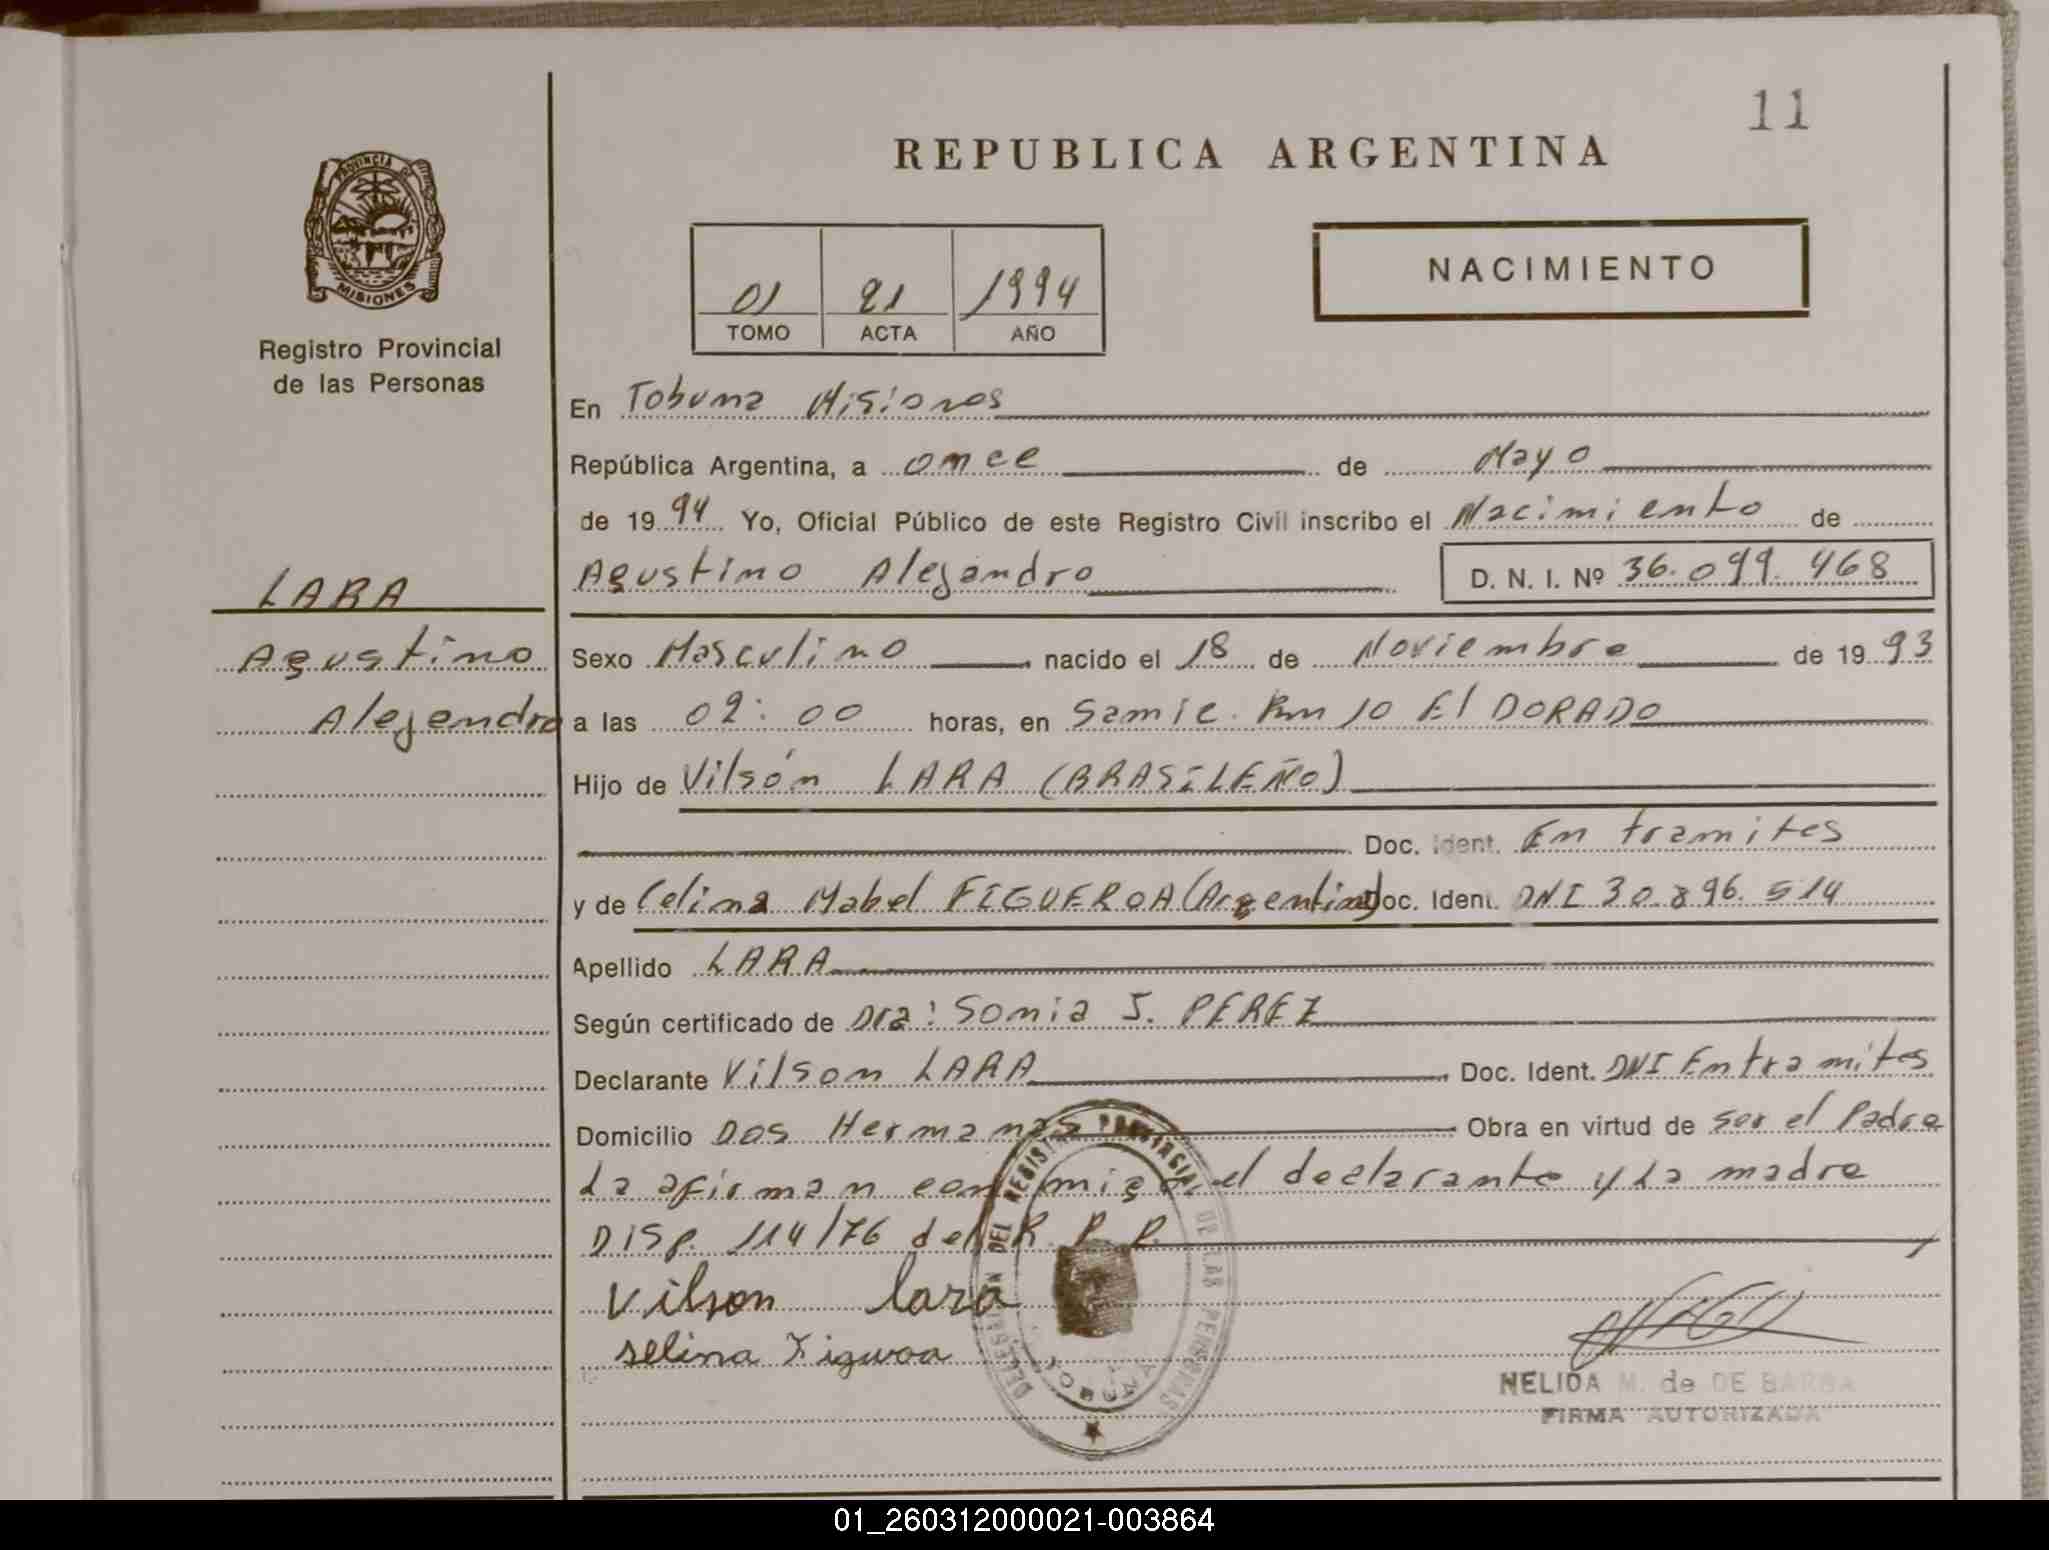 11
REPUBLICA ARGENTINA
PROVINCIA DE
MISIONES
Registro Provincial
de las Personas
01 21 1994
TOMO ACTA AÑO
NACIMIENTO
En Tobuna Misiones
República Argentina, a once de Mayo
de 1994 Yo, Oficial Público de este Registro Civil inscribo el Nacimiento de
Agustino Alejandro D. N. I. Nº 36.099.468
LARA
Agustino
Alejandro
Sexo Masculino nacido el 18 de Noviembre de 1993
a las 02:00 horas, en Samic. Km 10 El DORADO
Hijo de Vilsón LARA (BRASILEÑO)
Doc. Ident. En tramites
y de Celina Mabel FIGUEROA (Argentina) Doc. Ident. DNI 30.896.514
Apellido LARA
Según certificado de Dra: Sonia J. PEREZ
Declarante Vilson LARA Doc. Ident. DNI En tramites
Domicilio Dos Hermanas Obra en virtud de ser el Padre
La afirman conmigo el declarante y La madre
DISP. 114/76 del R. P. P.
Vilson lara
selina Figuroa
DELEGACION DEL REGISTRO PROVINCIAL DE LAS PERSONAS
NELIDA M. de DE BARBA
FIRMA AUTORIZADA
01_260312000021-003864